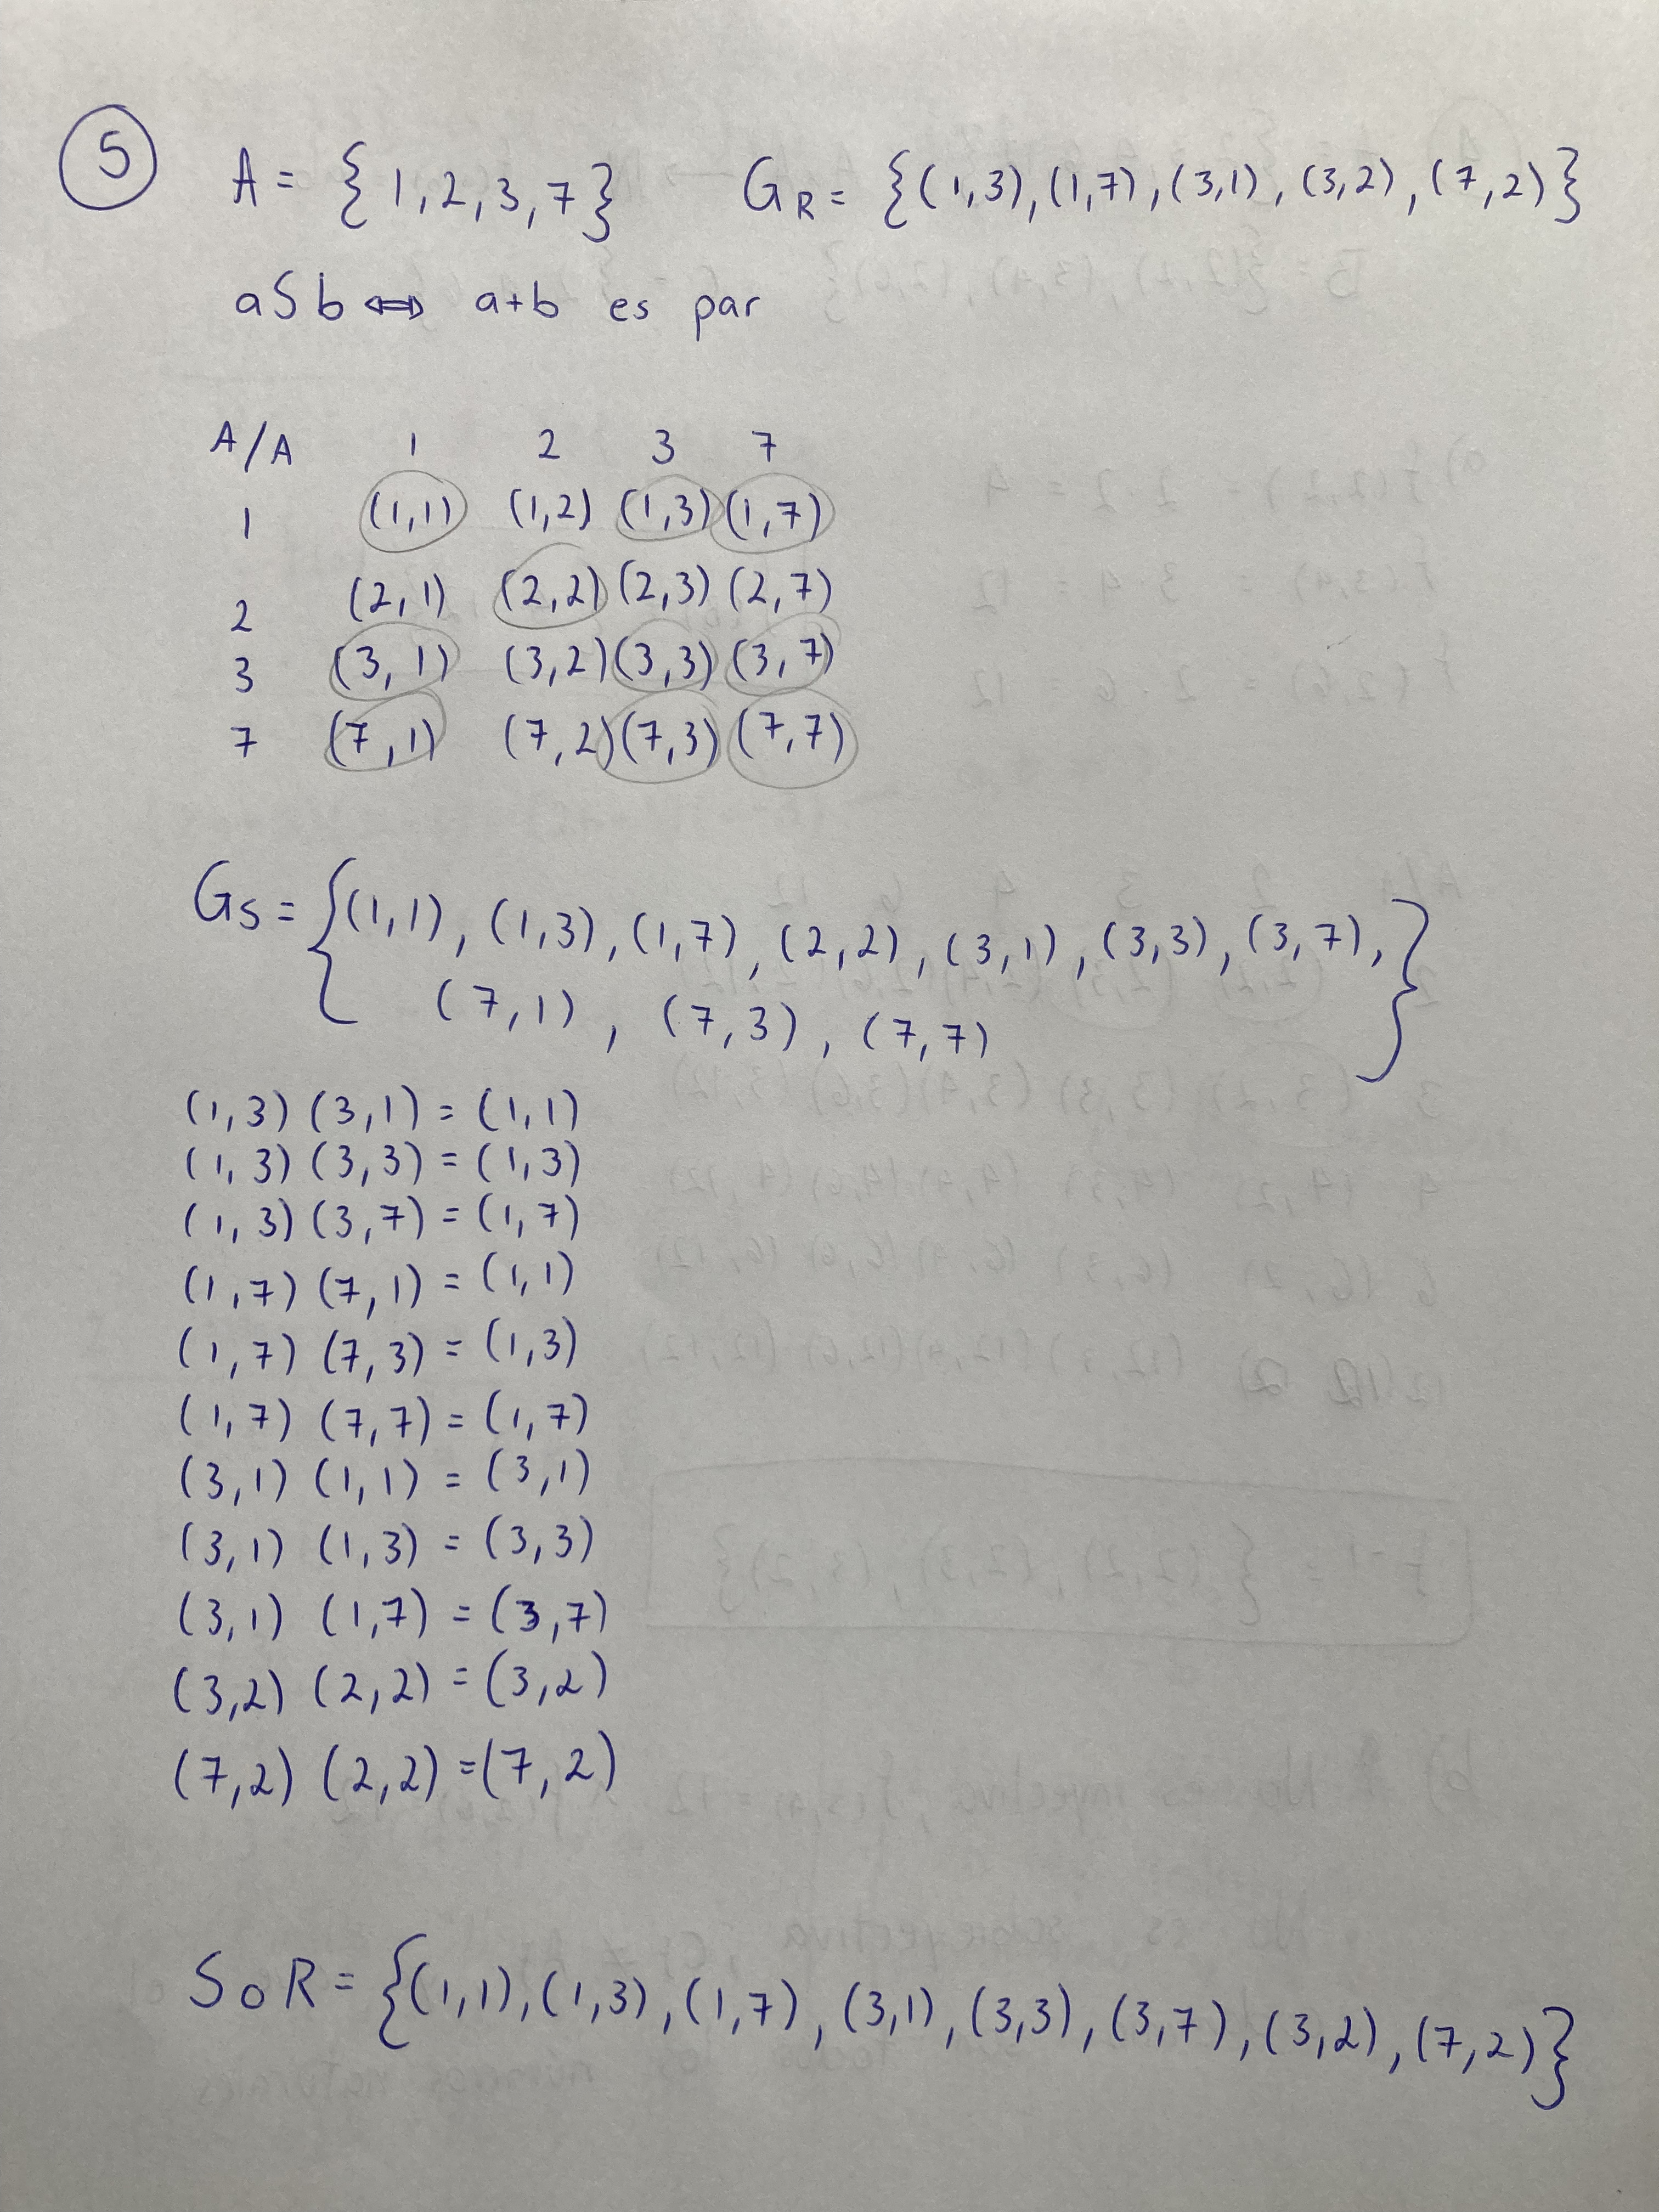 5 A = {1,2,3,7} GR = {(1,3),(1,7),(3,1),(3,2),(7,2)}
aSb ⟺ a+b es par
A/A 1 2 3 7
1 (1,1) (1,2) (1,3) (1,7)
2 (2,1) (2,2) (2,3) (2,7)
3 (3,1) (3,2) (3,3) (3,7)
7 (7,1) (7,2) (7,3) (7,7)
Gs = {(1,1), (1,3), (1,7), (2,2), (3,1), (3,3), (3,7),
(7,1), (7,3), (7,7)}
(1,3) (3,1) = (1,1)
(1,3) (3,3) = (1,3)
(1,3) (3,7) = (1,7)
(1,7) (7,1) = (1,1)
(1,7) (7,3) = (1,3)
(1,7) (7,7) = (1,7)
(3,1) (1,1) = (3,1)
(3,1) (1,3) = (3,3)
(3,1) (1,7) = (3,7)
(3,2) (2,2) = (3,2)
(7,2) (2,2) = (7,2)
S o R = {(1,1),(1,3),(1,7),(3,1),(3,3),(3,7),(3,2),(7,2)}